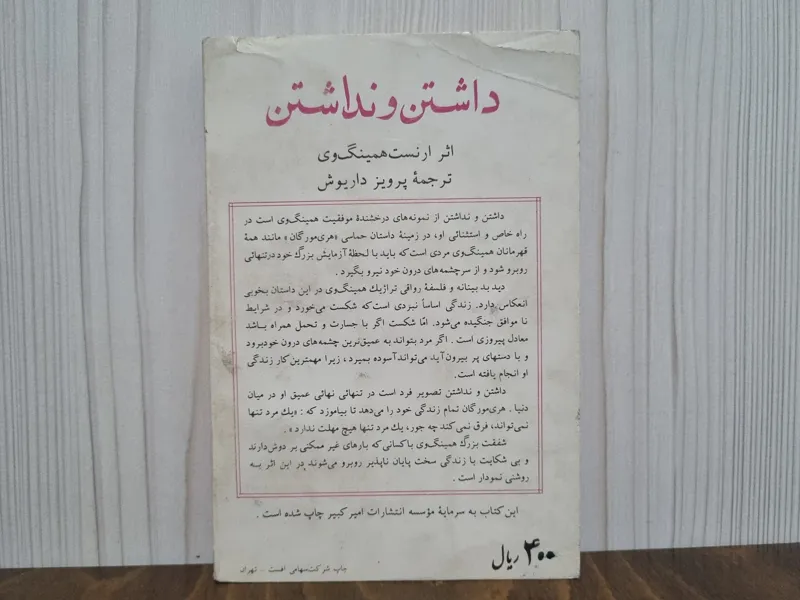 داشتن و نداشتن
اثر ارنست همینگ‌وی
ترجمهٔ پرویز داریوش
داشتن و نداشتن از نمونه‌های درخشندهٔ موفقیت همینگ‌وی است در
راه خاص و استثنائی او، در زمینهٔ داستان حماسی «هری‌مورگان» مانند همهٔ
قهرمانان همینگ‌وی مردی است که باید با لحظهٔ آزمایش بزرگ خود در تنهائی
روبرو شود و از سرچشمه‌های درون خود نیرو بگیرد.
دید بدبینانه و فلسفهٔ رواقی تراژیك همینگ‌وی در این داستان بخوبی
انعکاس دارد. زندگی اساساً نبردی است که شکست می‌خورد و در شرایط
نا موافق جنگیده می‌شود. امّا شکست اگر با جسارت و تحمل همراه باشد
معادل پیروزی است. اگر مرد بتواند به عمیق‌ترین چشمه‌های درون خود برود
و با دستهای پر بیرون آید می‌تواند آسوده بمیرد، زیرا مهمترین کار زندگی
او انجام یافته است.
داشتن و نداشتن تصویر فرد است در تنهائی نهائی عمیق او در میان
دنیا. هری‌مورگان تمام زندگی خود را می‌دهد تا بیاموزد که: «یك مرد تنها
نمی‌تواند، فرق نمی‌کند چه جور، یك مرد تنها هیچ مهلت ندارد».
شفقت بزرگ همینگ‌وی با کسانی که بارهای غیر ممکنی بر دوش دارند
و بی شکایت با زندگی سخت پایان ناپذیر روبرو می‌شوند در این اثر به
روشنی نمودار است.
این کتاب به سرمایهٔ مؤسسه انتشارات امیرکبیر چاپ شده است.
۴۰۰ ریال
چاپ شرکت سهامی افست - تهران